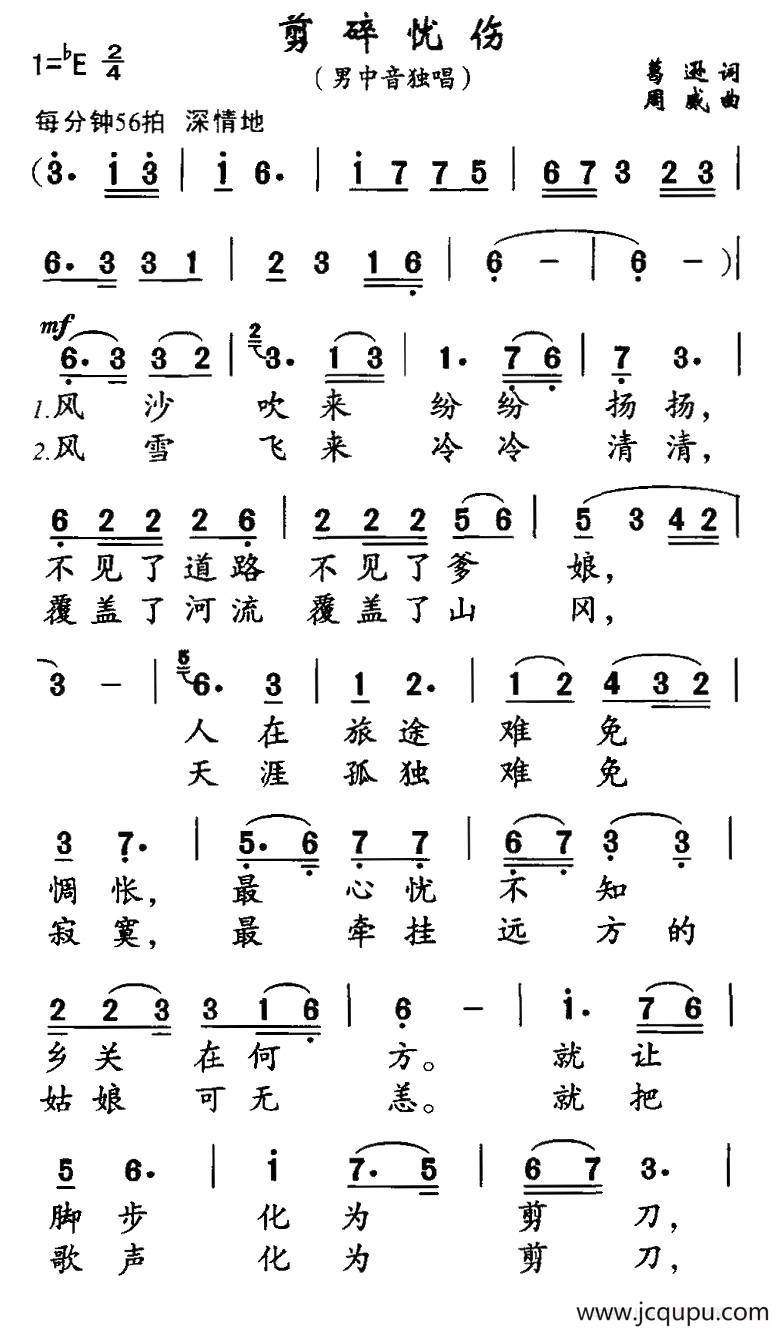 剪碎忧伤
1=♭E 2/4
（男中音独唱）
葛逊词
周威曲
每分钟56拍 深情地
(3. 1 3 | 1 6. | 1 7 7 5 | 6 7 3 2 3 |
6. 3 3 1 | 2 3 1 6 | 6 - | 6 - )|
mf
6. 3 3 2 | 2 3. 1 3 | 1. 7 6 | 7 3. |
1.风沙吹来纷纷扬扬,
2.风雪飞来冷冷清清,
6 2 2 2 6 | 2 2 2 5 6 | 5 3 4 2 |
不见了道路不见了爹娘,
覆盖了河流覆盖了山冈,
3 - | 5 6. 3 | 1 2. | 1 2 4 3 2 |
人在旅途难免
天涯孤独难免
3 7. | 5. 6 7 7 | 6 7 3 3 |
惆怅,最心忧不知
寂寞,最牵挂远方的
2 2 3 3 1 6 | 6 - | 1. 7 6 |
乡关在何方。就让
姑娘可无恙。就把
5 6. | 1 7. 5 | 6 7 3. |
脚步化为剪刀,
歌声化为剪刀,
www.jcqupu.com